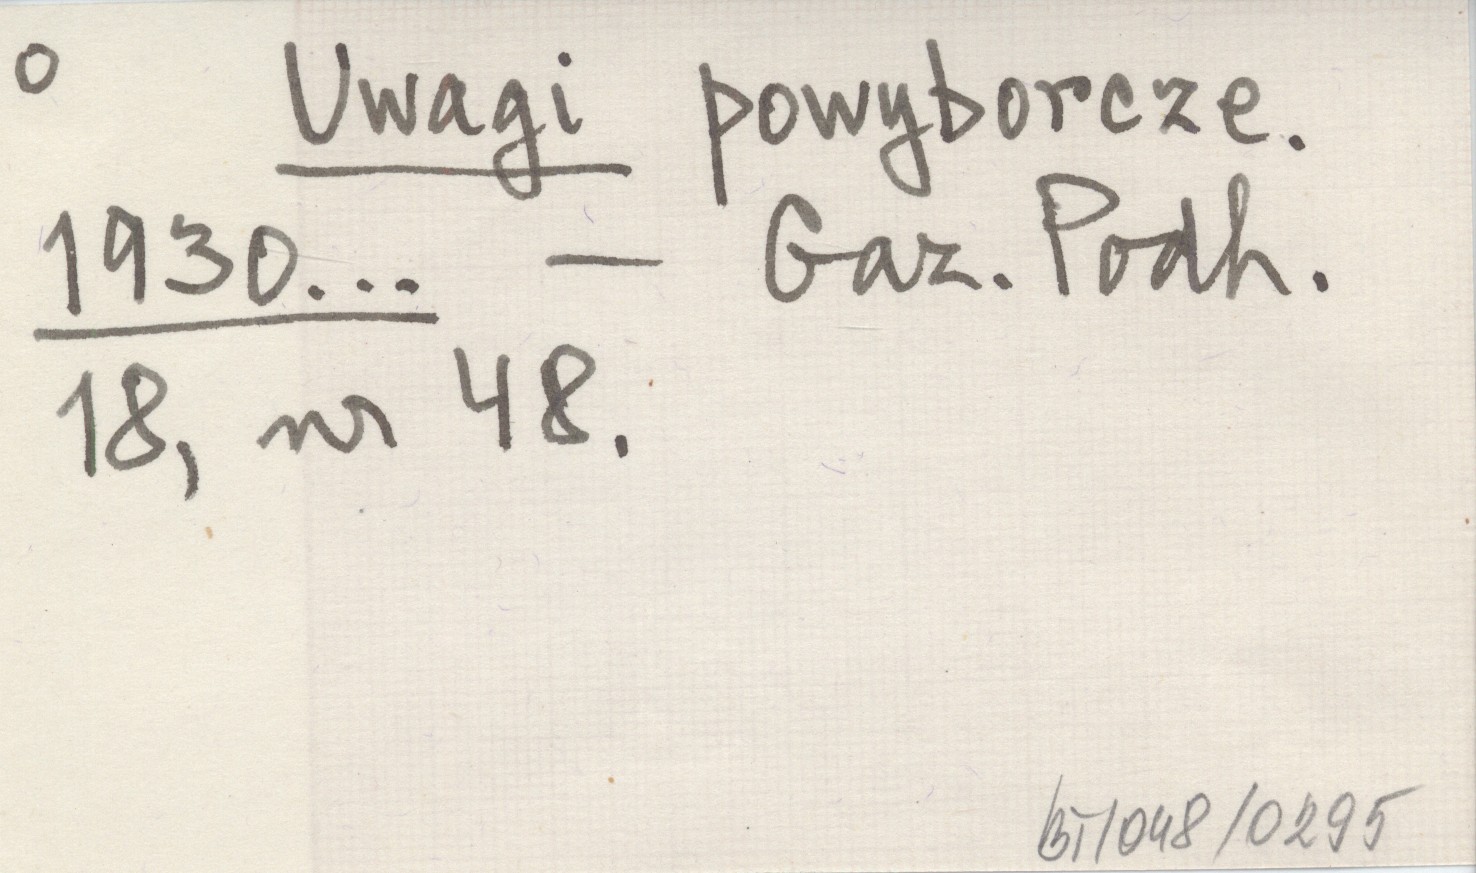 o Uwagi powyborcze.
1930... — Gaz. Podh.
18, nr 48.
BT/048/0295